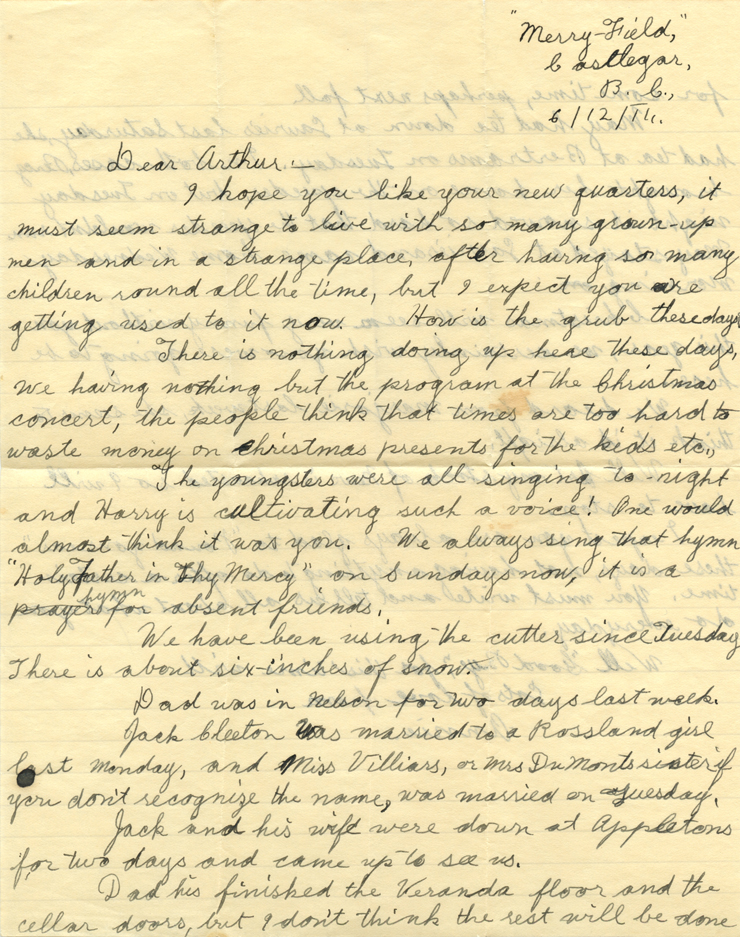 "Merry-Field,"
Castlegar,
B. C.,
6/12/14.
Dear Arthur:—
I hope you like your new quarters, it
must seem strange to live with so many grown-up
men and in a strange place, after having so many
children round all the time, but I expect you are
getting used to it now. How is the grub these days
There is nothing doing up here these days,
We having nothing but the program at the Christmas
concert, the people think that times are too hard to
waste money on Christmas presents for the kids etc.,
The youngsters were all singing to-night
and Harry is cultivating such a voice! One would
almost think it was you. We always sing that hymn
"Holy Father in Thy Mercy" on Sundays now, it is a
prayer hymn for absent friends.
We have been using the cutter since Tuesday
There is about six-inches of snow.
Dad was in Nelson for two days last week.
Jack Cleeton was married to a Rossland girl
last Monday, and Miss Villiars, or Mrs DuMonts sister if
you don't recognize the name, was married on Tuesday.
Jack and his wife were down at Appletons
for two days and came up to see us.
Dad his finished the Veranda floor and the
cellar doors, but I don't think the rest will be done